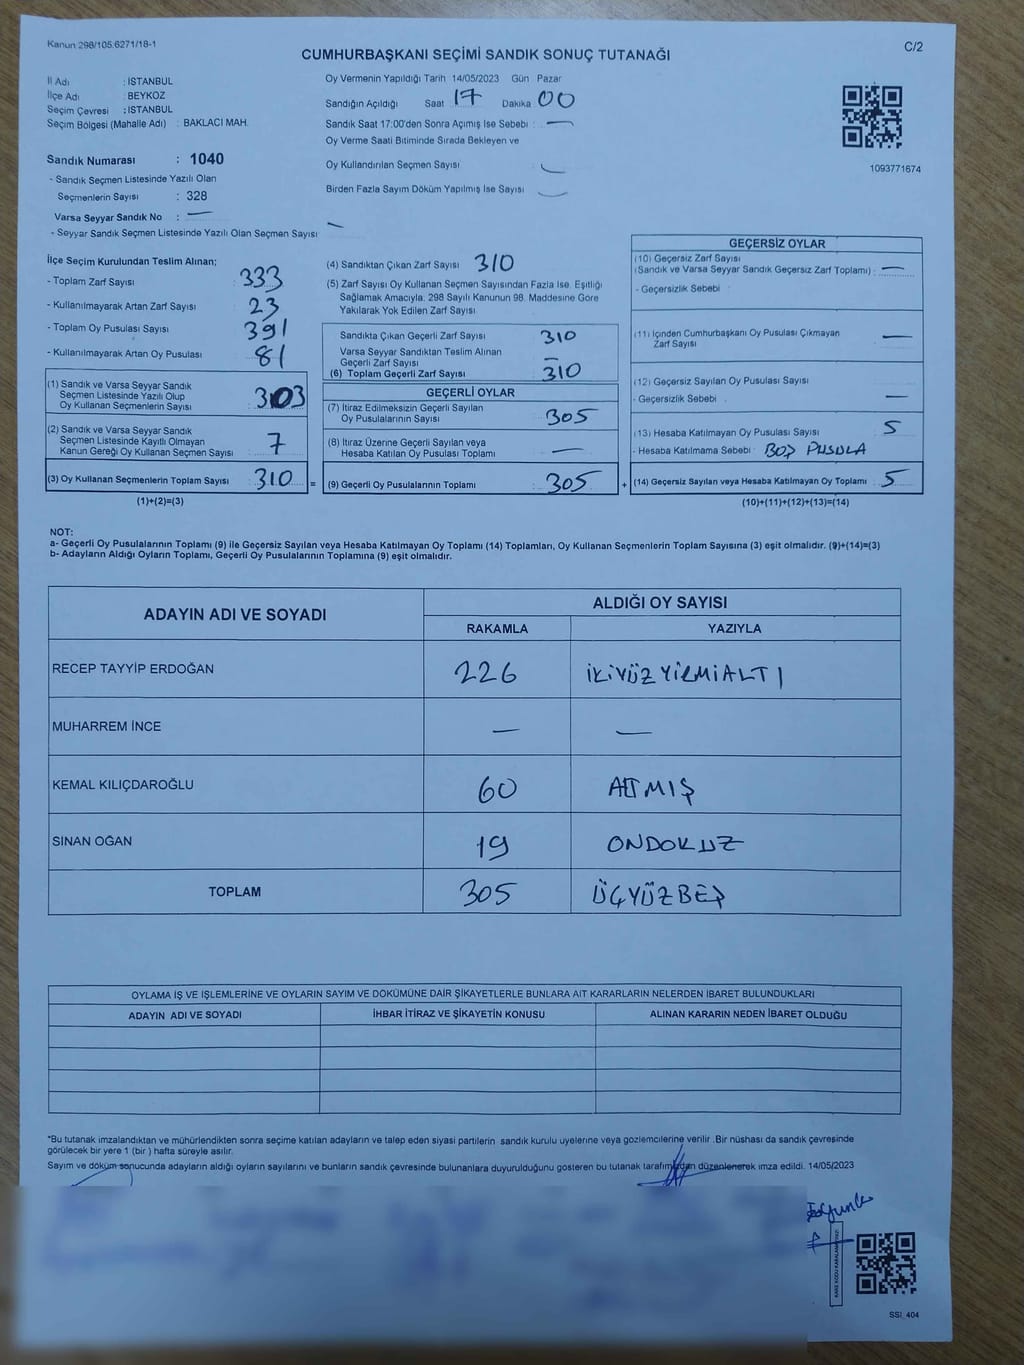 Kanun 298/105.6271/18-1
C/2
CUMHURBAŞKANI SEÇİMİ SANDIK SONUÇ TUTANAĞI
İl Adı : İSTANBUL
İlçe Adı : BEYKOZ
Seçim Çevresi : İSTANBUL
Seçim Bölgesi (Mahalle Adı) : BAKLACI MAH.
Sandık Numarası : 1040
- Sandık Seçmen Listesinde Yazılı Olan
Seçmenlerin Sayısı : 328
Varsa Seyyar Sandık No : —
- Seyyar Sandık Seçmen Listesinde Yazılı Olan Seçmen Sayısı: —
Oy Vermenin Yapıldığı Tarih 14/05/2023 Gün Pazar
Sandığın Açıldığı Saat 17 Dakika 00
Sandık Saat 17:00'den Sonra Açımış İse Sebebi : —
Oy Verme Saati Bitiminde Sırada Bekleyen ve
Oy Kullandırılan Seçmen Sayısı —
Birden Fazla Sayım Döküm Yapılmış İse Sayısı —
1093771674
İlçe Seçim Kurulundan Teslim Alınan;
- Toplam Zarf Sayısı : 333
- Kullanılmayarak Artan Zarf Sayısı : 23
- Toplam Oy Pusulası Sayısı : 391
- Kullanılmayarak Artan Oy Pusulası : 81
(1) Sandık ve Varsa Seyyar Sandık
Seçmen Listesinde Yazılı Olup
Oy Kullanan Seçmenlerin Sayısı : 303
(2) Sandık ve Varsa Seyyar Sandık
Seçmen Listesinde Kayıtlı Olmayan
Kanun Gereği Oy Kullanan Seçmen Sayısı : 7
(3) Oy Kullanan Seçmenlerin Toplam Sayısı : 310
(1)+(2)=(3)
=
(4) Sandıktan Çıkan Zarf Sayısı : 310
(5) Zarf Sayısı Oy Kullanan Seçmen Sayısından Fazla İse, Eşitliği
Sağlamak Amacıyla, 298 Sayılı Kanunun 98. Maddesine Göre
Yakılarak Yok Edilen Zarf Sayısı :
Sandıkta Çıkan Geçerli Zarf Sayısı : 310
Varsa Seyyar Sandıktan Teslim Alınan
Geçerli Zarf Sayısı : —
(6) Toplam Geçerli Zarf Sayısı : 310
GEÇERLİ OYLAR
(7) İtiraz Edilmeksizin Geçerli Sayılan
Oy Pusulalarının Sayısı : 305
(8) İtiraz Üzerine Geçerli Sayılan veya
Hesaba Katılan Oy Pusulası Toplamı : —
(9) Geçerli Oy Pusulalarının Toplamı : 305
+
GEÇERSİZ OYLAR
(10) Geçersiz Zarf Sayısı
(Sandık ve Varsa Seyyar Sandık Geçersiz Zarf Toplamı) : —
- Geçersizlik Sebebi :
(11) İçinden Cumhurbaşkanı Oy Pusulası Çıkmayan
Zarf Sayısı : —
(12) Geçersiz Sayılan Oy Pusulası Sayısı :
- Geçersizlik Sebebi : —
(13) Hesaba Katılmayan Oy Pusulası Sayısı : 5
- Hesaba Katılmama Sebebi : BOŞ PUSULA
(14) Geçersiz Sayılan veya Hesaba Katılmayan Oy Toplamı : 5
(10)+(11)+(12)+(13)=(14)
NOT:
a- Geçerli Oy Pusulalarının Toplamı (9) ile Geçersiz Sayılan veya Hesaba Katılmayan Oy Toplamı (14) Toplamları, Oy Kullanan Seçmenlerin Toplam Sayısına (3) eşit olmalıdır. (9)+(14)=(3)
b- Adayların Aldığı Oyların Toplamı, Geçerli Oy Pusulalarının Toplamına (9) eşit olmalıdır.
ADAYIN ADI VE SOYADI
ALDIĞI OY SAYISI
RAKAMLA YAZIYLA
RECEP TAYYİP ERDOĞAN 226 İKİYÜZ YİRMİALTI
MUHARREM İNCE — —
KEMAL KILIÇDAROĞLU 60 ALTMIŞ
SİNAN OĞAN 19 ONDOKUZ
TOPLAM 305 ÜÇYÜZBEŞ
OYLAMA İŞ VE İŞLEMLERİNE VE OYLARIN SAYIM VE DÖKÜMÜNE DAİR ŞİKAYETLERLE BUNLARA AİT KARARLARIN NELERDEN İBARET BULUNDUKLARI
ADAYIN ADI VE SOYADI İHBAR İTİRAZ VE ŞİKAYETİN KONUSU ALINAN KARARIN NEDEN İBARET OLDUĞU
*Bu tutanak imzalandıktan ve mühürlendikten sonra seçime katılan adayların ve talep eden siyasi partilerin sandık kurulu üyelerine veya gözlemcilerine verilir .Bir nüshası da sandık çevresinde
görülecek bir yere 1 (bir ) hafta süreyle asılır.
Sayım ve döküm sonucunda adayların aldığı oyların sayılarını ve bunların sandık çevresinde bulunanlara duyurulduğunu gösteren bu tutanak tarafımızdan düzenlenerek imza edildi. 14/05/2023
KARE KODU KARALAMAYINIZ!
SSI_404